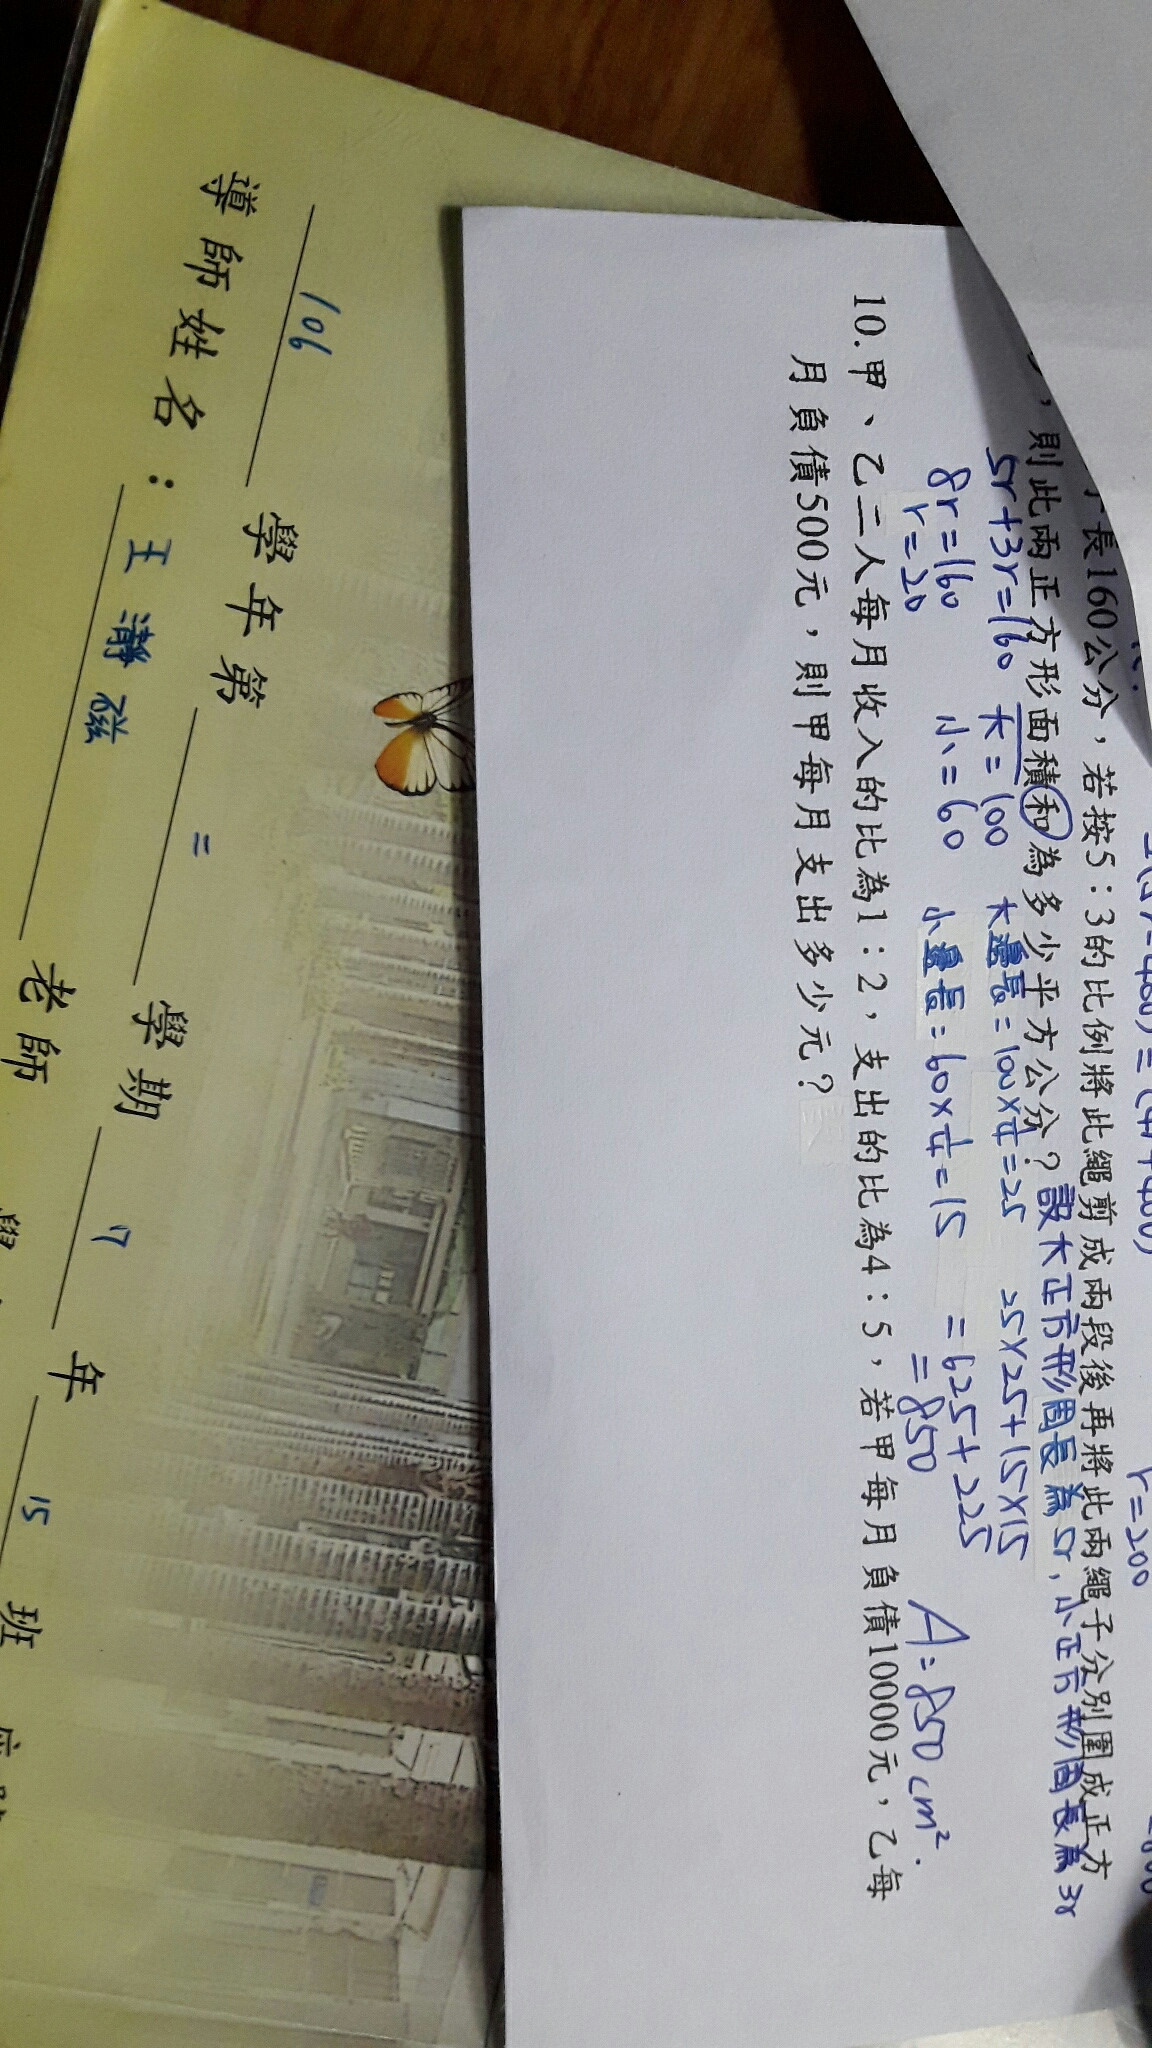 r=200
長160公分，若按5：3的比例將此繩剪成兩段後再將此兩繩子分別圍成正方
，則此兩正方形面積和為多少平方公分？設大正方形周長為5r，小正方形周長為3r
5r+3r=160 大=100 大邊長=100×1/4=25 25×25+15×15
8r=160 小=60 小邊長=60×1/4=15 =625+225
r=20 =850 A:850cm².
10.甲、乙二人每月收入的比為1：2，支出的比為4：5，若甲每月負債10000元，乙每
月負債500元，則甲每月支出多少元？
106 學年第 二 學期 7 年 15 班
導師姓名：王瀞 老師